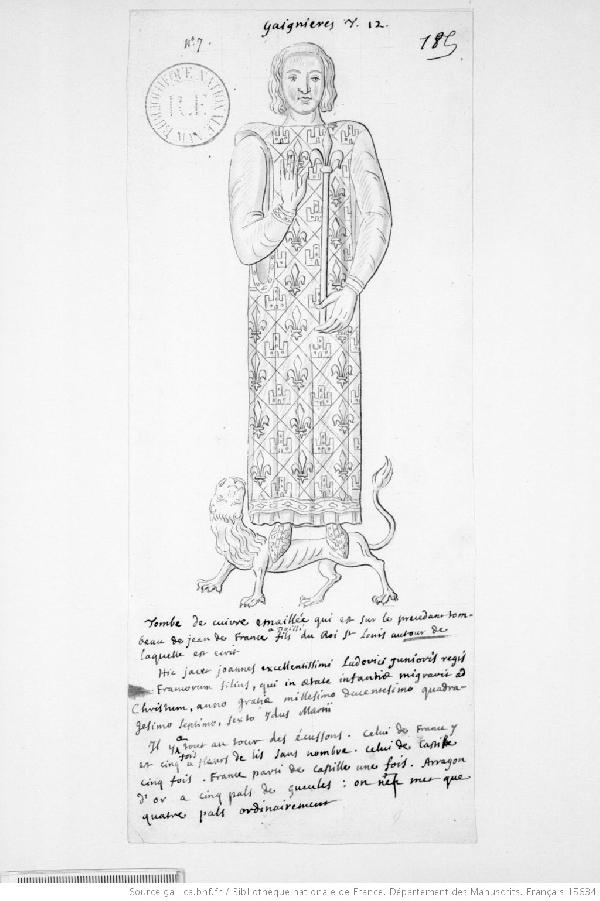 Gaignieres 7. 12.
N.º 7
185
BIBLIOTHEQUE NATIONALE MAN.
R.F.
Tombe de cuivre emaillée qui est sur le pretendant tom-
beau de jean de France fils du Roi St Louis autour de
a Poissi
laquelle est ecrit
Hic jacet joannes excellentissimi Ludovici junioris regis
Francorum filius, qui in ætate infantiæ migravit ad
Christum, anno gratiæ millesimo ducentesimo quadra-
gesimo septimo, sexto ydus Martii
Il y a tout au tour des écussons. celui de France y
et cinq fois a fleurs de lis sans nombre. celui de Castille
cinq fois. France parti de Castille une fois. Arragon
d'or a cinq pals de gueules: on met que
quatre pals ordinairement
Source gallica.bnf.fr / Bibliothèque nationale de France. Département des Manuscrits. Français 15634